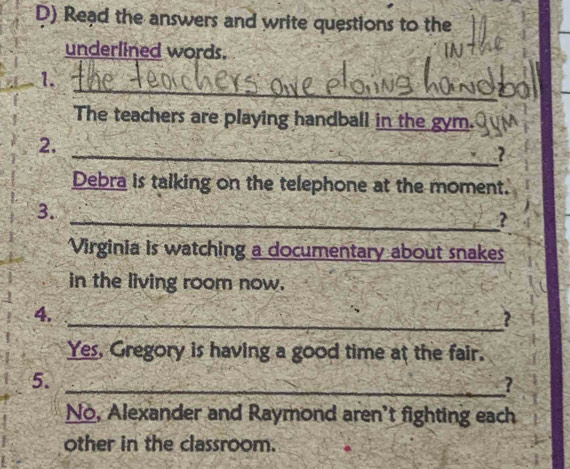 D) Read the answers and write questions to the
underlined words.
IN the
1. the teachers are ploiing handball
The teachers are playing handball in the gym. gyM
2. ?
Debra is talking on the telephone at the moment.
3. ?
Virginia is watching a documentary about snakes
in the living room now.
4. ?
Yes, Gregory is having a good time at the fair.
5. ?
No, Alexander and Raymond aren't fighting each
other in the classroom.